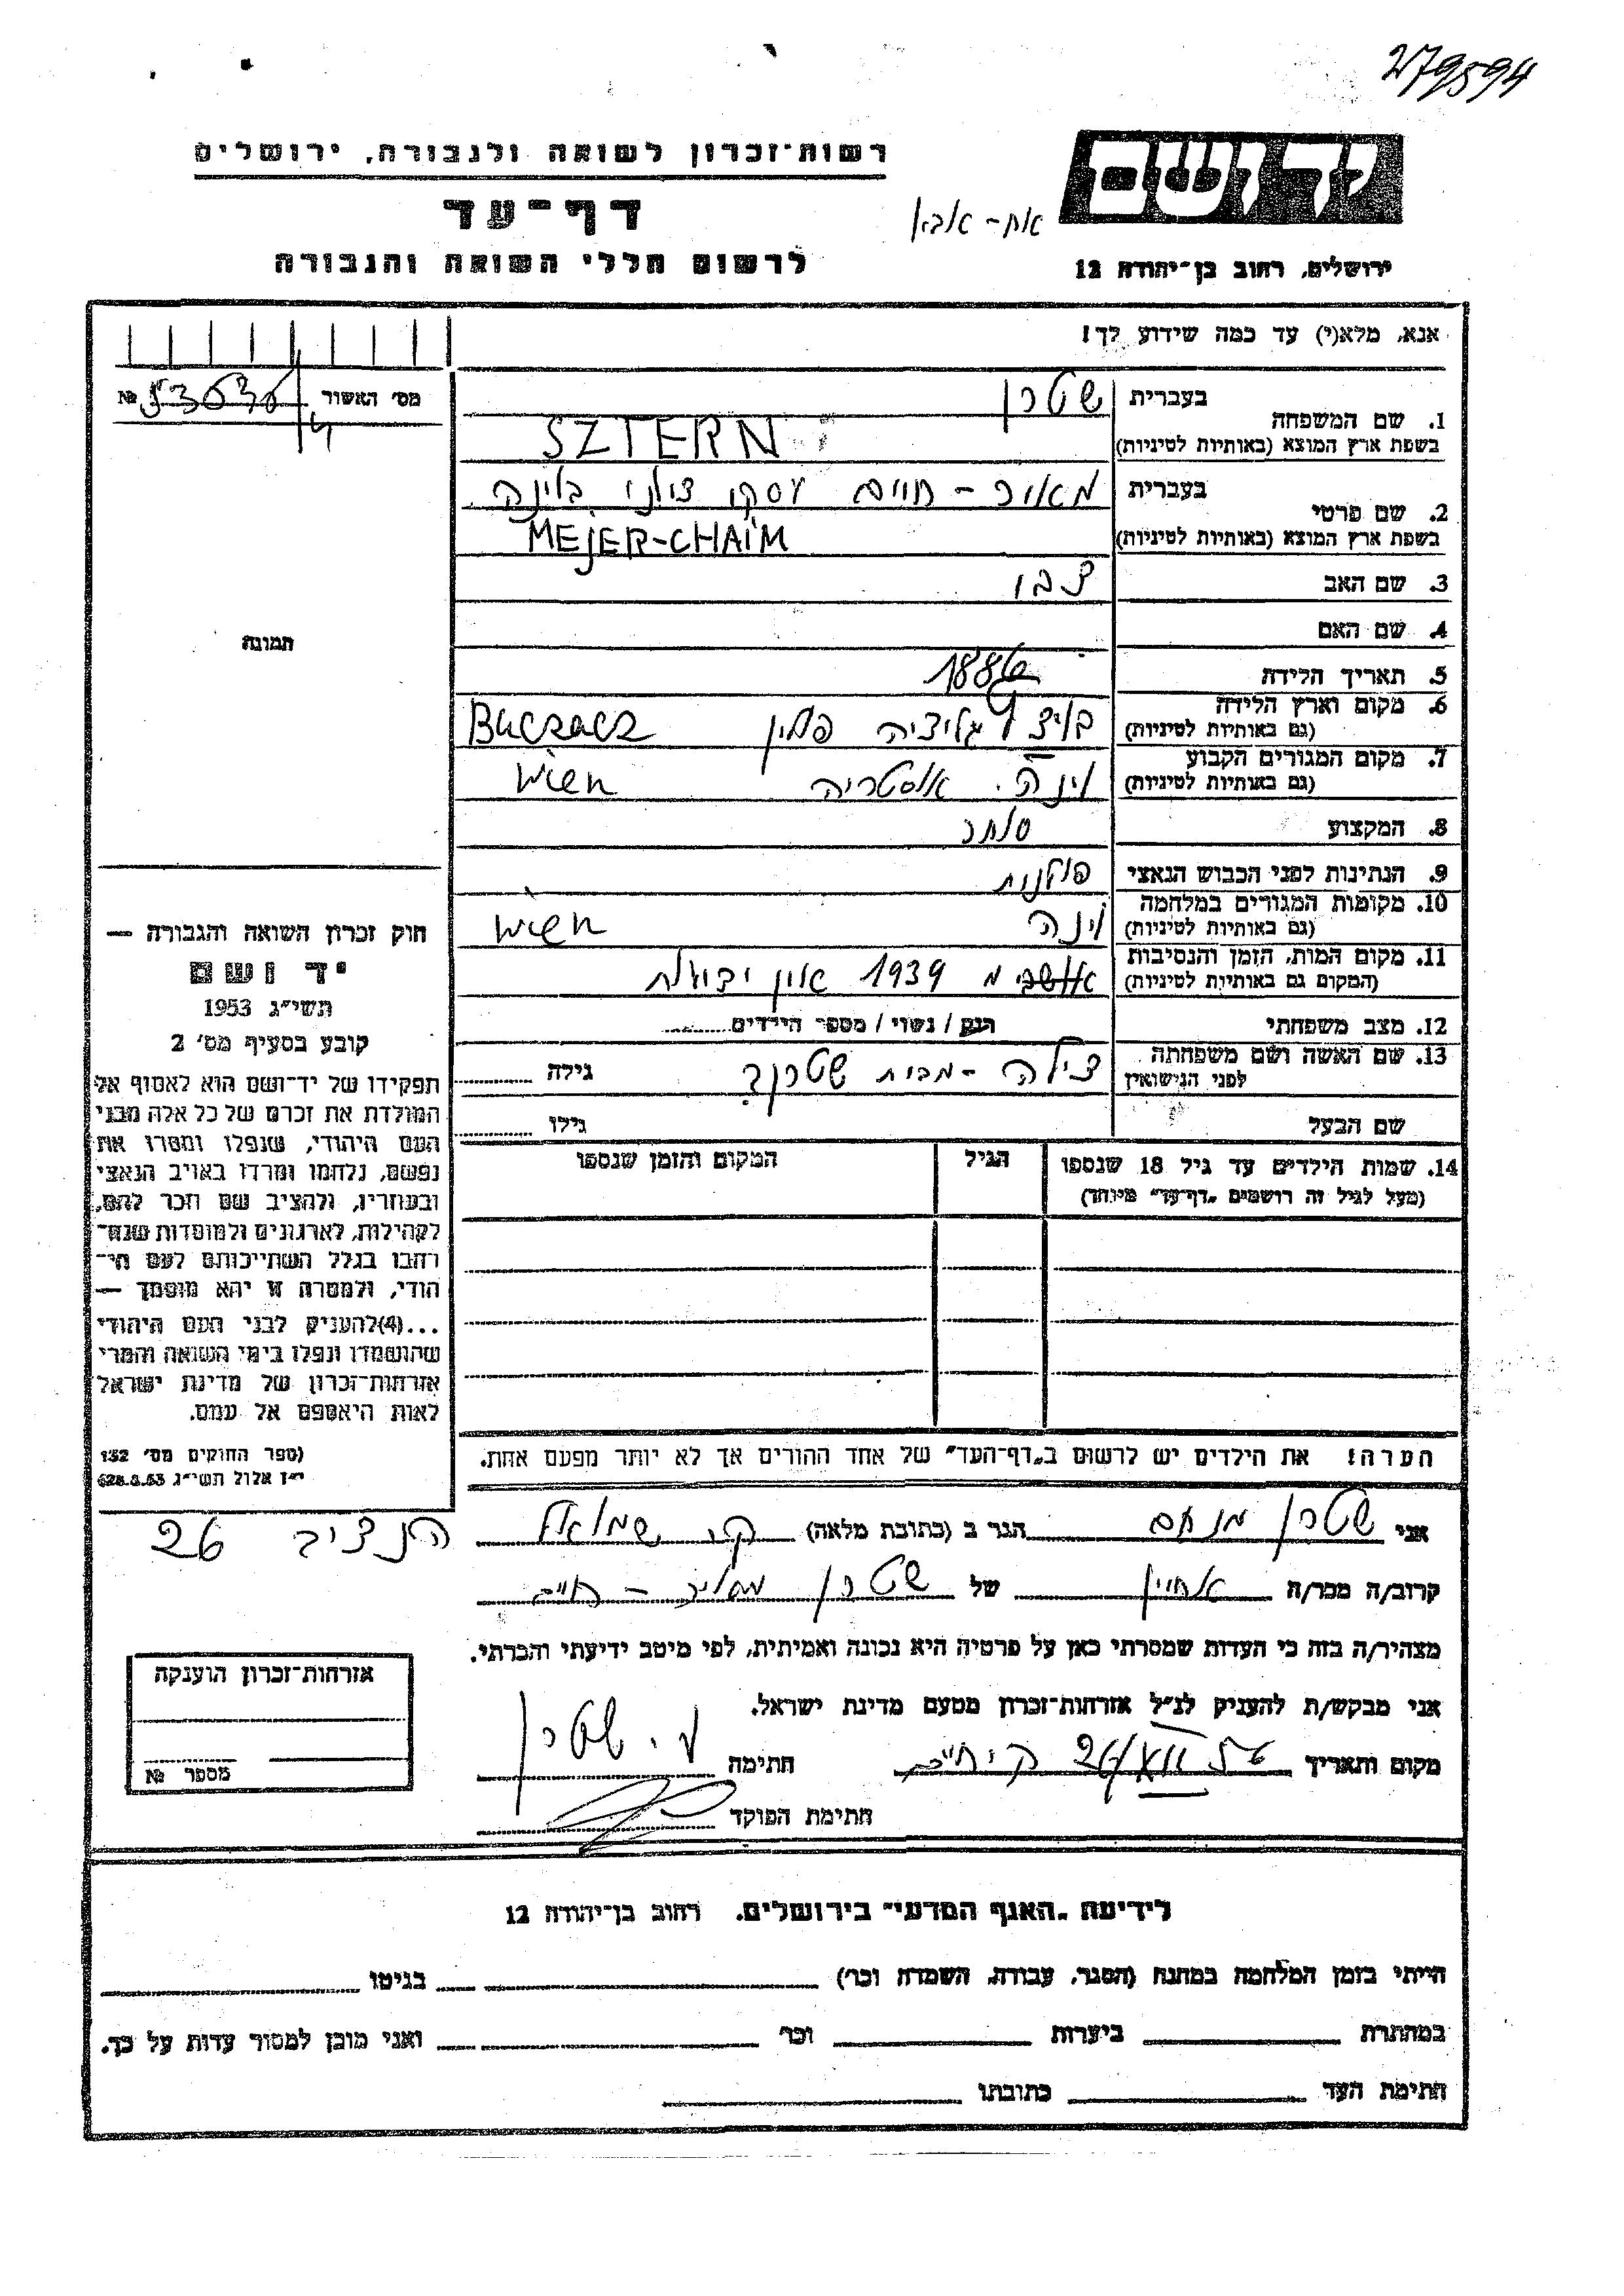 279594
רשות־זכרון לשואה ולגבורה, ירושלים
יד ושם
דף־עד
לרשום חללי השואה והגבורה
ירושלים, רחוב בן־יהודה 12
אנא, מלא(י) עד כמה שידוע לך!
מס׳ האשור №
1. שם המשפחה
בעברית שטרן
בשפת ארץ המוצא (באותיות לטיניות) SZTERN
2. שם פרטי
בעברית מאיר - חיים
בשפת ארץ המוצא (באותיות לטיניות) MEJER-CHAIM
3. שם האב צבי
4. שם האם
תמונה
5. תאריך הלידה
6. מקום וארץ הלידה גליציה פולין Buczacz
(גם באותיות לטיניות)
7. מקום המגורים הקבוע וינה. אוסטריה Wien
(גם באותיות לטיניות)
8. המקצוע סוחר
9. הנתינות לפני הכבוש הנאצי פולנית
10. מקומות המגורים במלחמה וינה Wien
(גם באותיות לטיניות)
11. מקום המות, הזמן והנסיבות מ 1939 אין ידיעות
(המקום גם באותיות לטיניות)
12. מצב משפחתי רווק / נשוי / מספר הילדים
13. שם האשה ושם משפחתה צילה - מבית גילה
לפני הנישואין
שם הבעל גילו
14. שמות הילדים עד גיל 18 שנספו הגיל המקום והזמן שנספו
(מעל לגיל זה רושמים „דף־עד" מיוחד)
חוק זכרון השואה והגבורה —
יד ושם
תשי״ג 1953
קובע בסעיף מס׳ 2
תפקידו של יד־ושם הוא לאסוף אל
המולדת את זכרם של כל אלה מבני
העם היהודי, שנפלו ומסרו את
נפשם, נלחמו ומרדו באויב הנאצי
ובעוזריו, ולהציב שם וזכר להם,
לקהילות, לארגונים ולמוסדות שנח־
רבו בגלל השתייכותם לעם הי־
הודי, ולמטרה זו יהא מוסמך —
...(4)להעניק לבני העם היהודי
שהושמדו ונפלו בימי השואה והמרי
אזרחות־זכרון של מדינת ישראל
לאות היאספם אל עמם.
(ספר החוקים מס׳ 132
י״ז אלול תשי״ג 28.8.53)
הערה! את הילדים יש לרשום ב„דף־העד" של אחד ההורים אך לא יותר מפעם אחת.
אני שטרן מנחם הגר ב (כתובת מלאה) קר׳ שמואל הנציב 26
קרוב/ה מכר/ה אחיין של שטרן מאיר - חיים
מצהיר/ה בזה כי העדות שמסרתי כאן על פרטיה היא נכונה ואמיתית, לפי מיטב ידיעתי והכרתי.
אני מבקש/ת להעניק לנ״ל אזרחות־זכרון מטעם מדינת ישראל.
מקום ותאריך חתימה מ. שטרן
חתימת הפוקד
אזרחות־זכרון הוענקה
מספר №
לידיעת „האגף המדעי" בירושלים. רחוב בן־יהודה 12
הייתי בזמן המלחמה במחנה (הסגר, עבודה, השמדה וכו׳) בגיטו
במחתרת ביערות וכו׳ ואני מוכן למסור עדות על כך.
חתימת העד כתובתו